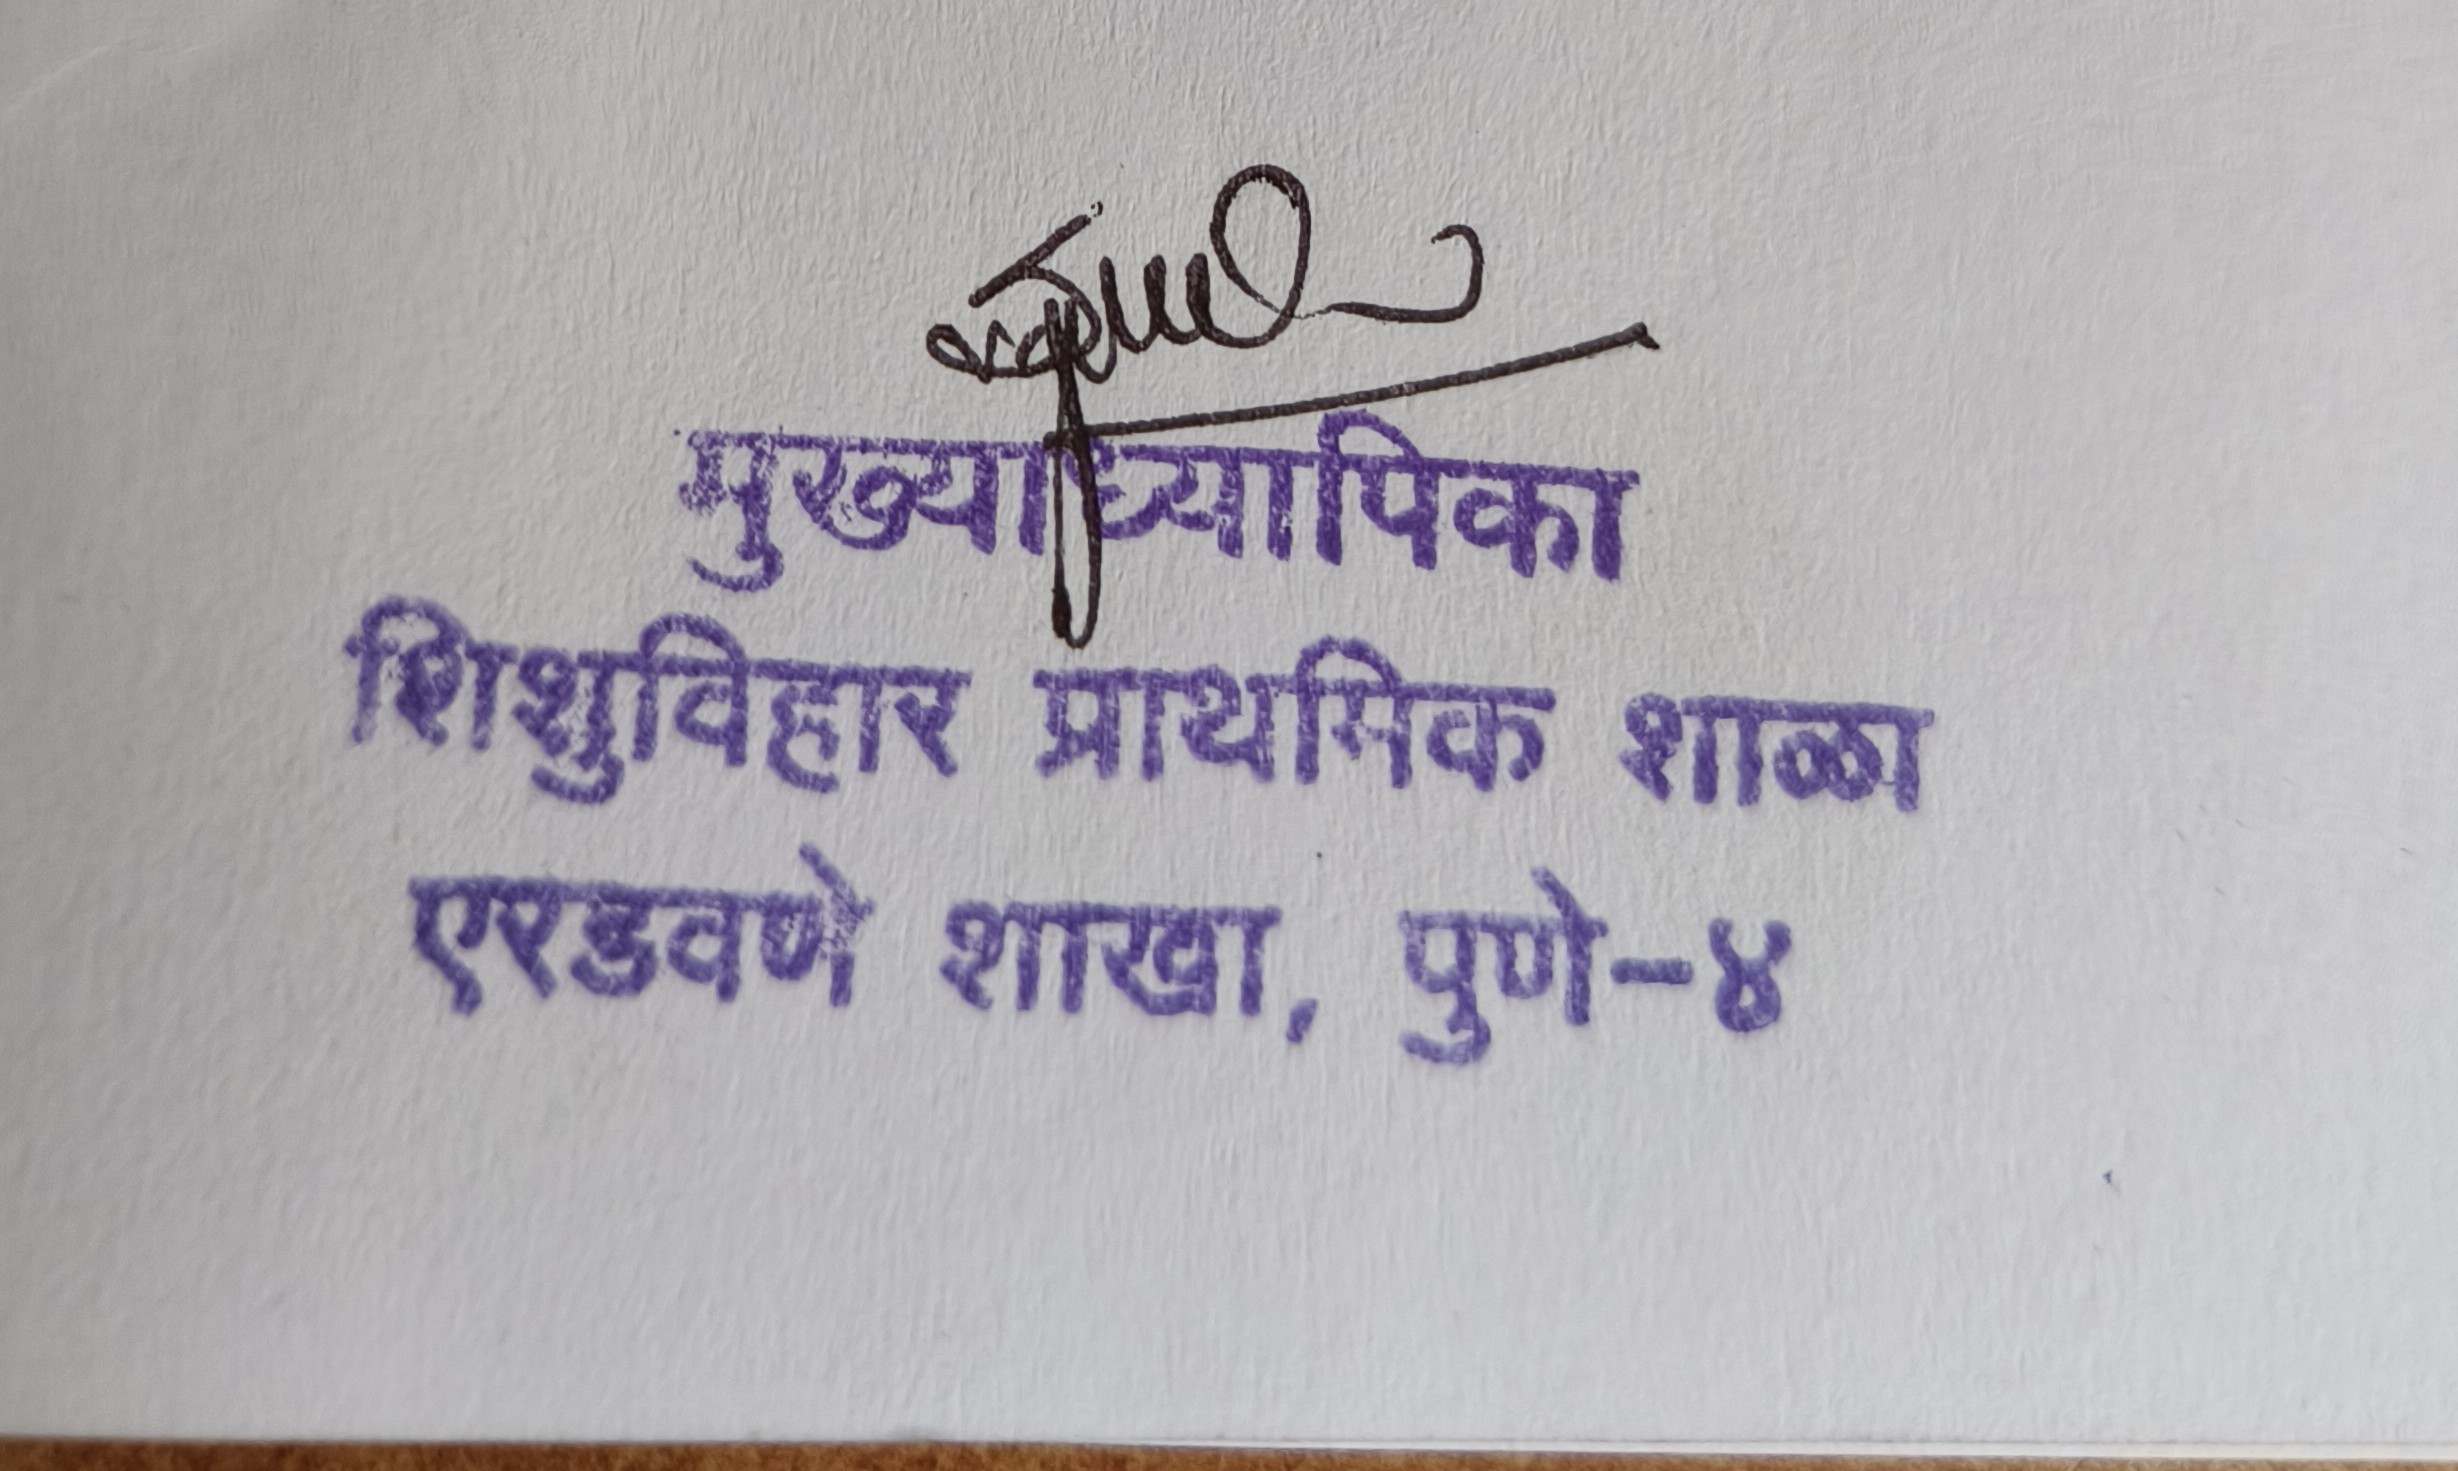 मुख्याध्यापिका
शिशुविहार प्राथमिक शाळा
एरडवणे शाखा, पुणे-४